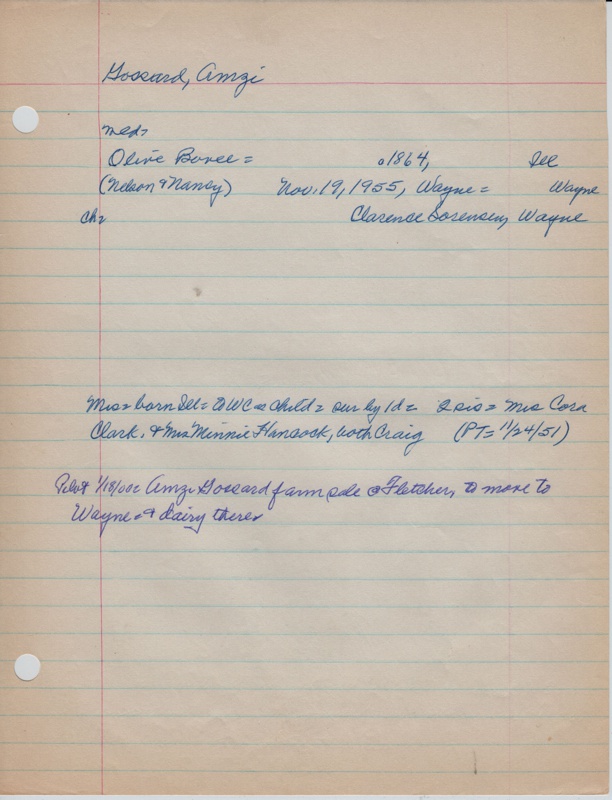 Gossard, Amzi
md=
Olive Bovee = c1864, Ill
(Nelson & Nancy) Nov. 19, 1955, Wayne = Wayne
ch= Clarence Sorensen, Wayne
Mrs = born Ill = to WC as child = sur by 1d = 2 sis = Mrs Cora
Clark, & Mrs Minnie Hancock, both Craig (PT= 11/24/51)
Pilot 1/18/00= Amzi Gossard farm sale @ Fletcher, to move to
Wayne = & dairy there